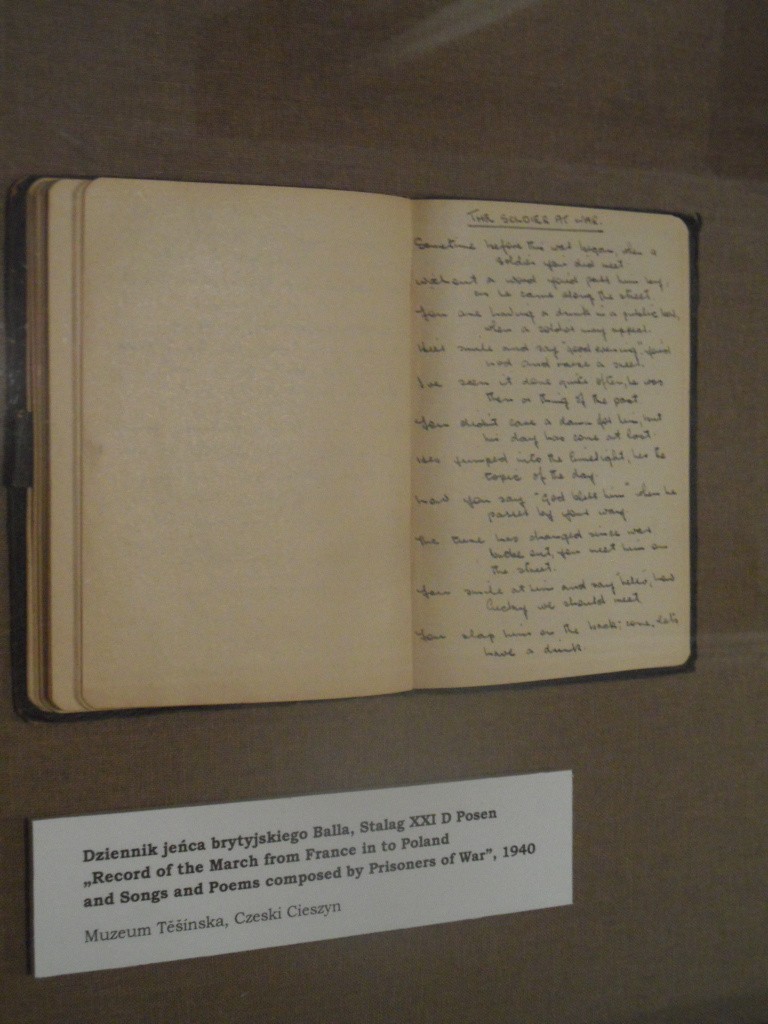 THE SOLDIER AT WAR.
Sometime before this war began, when a
soldier you did meet
Without a word you'd pass him by,
as he came along the street
You are having a drink in a public bar,
when a soldier may appear.
He'll smile and say "good evening" you'd
nod and raise a sneer.
I've seen it done quite often, he was
then a thing of the past
You didn't care a damn for him, but
his day has come at last
He's jumped into the limelight, he's the
topic of the day.
Now you say "God bless him" when he
passes by your way
The tune has changed since war
broke out, you meet him on
the street.
You smile at him and say 'hello', how
lucky we should meet
You slap him on the back; come, let's
have a drink.
Dziennik jeńca brytyjskiego Balla, Stalag XXI D Posen
„Record of the March from France in to Poland
and Songs and Poems composed by Prisoners of War”, 1940
Muzeum Těšínska, Czeski Cieszyn